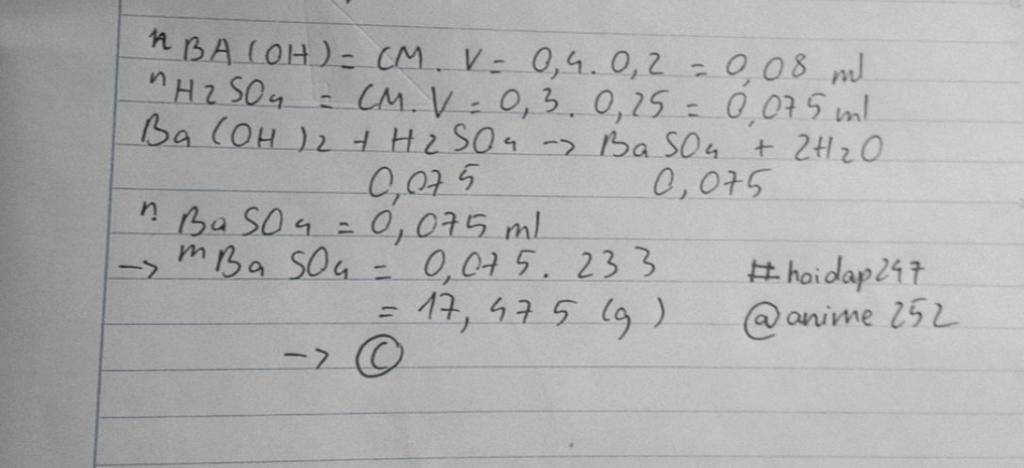 nBA(OH) = CM. V = 0,4. 0,2 = 0,08 ml
nH2SO4 = CM. V = 0,3. 0,25 = 0,075 ml
Ba(OH)2 + H2SO4 -> BaSO4 + 2H2O
0,075 0,075
n BaSO4 = 0,075 ml
-> mBaSO4 = 0,075. 233
= 17,475 (g)
-> Ⓒ
#hoidap247
@anime252